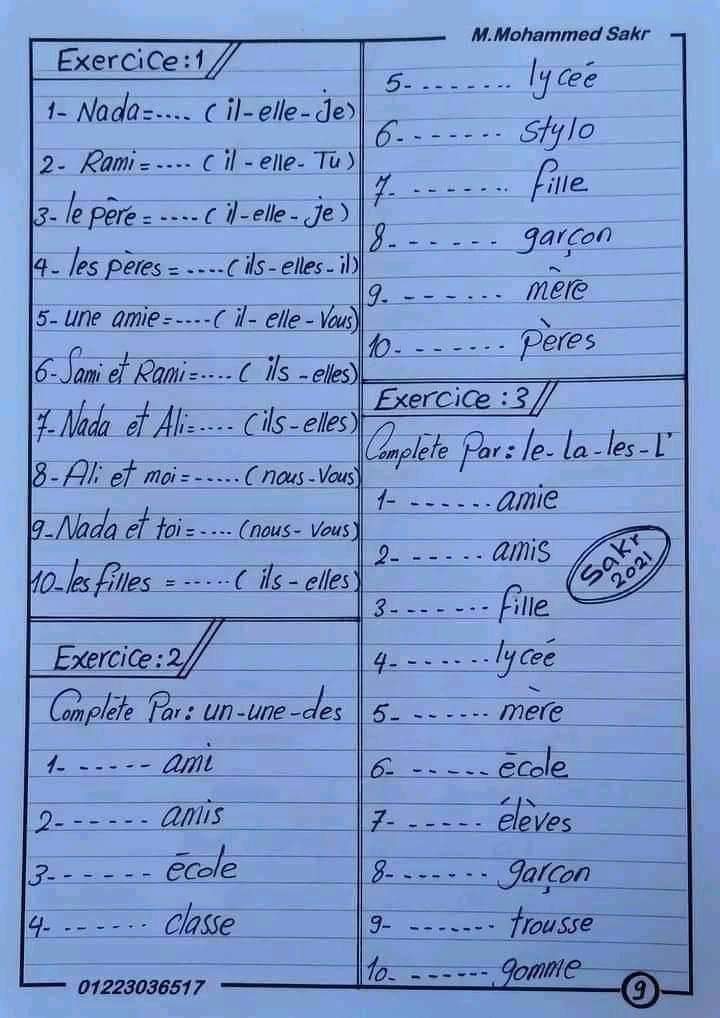 M.Mohammed Sakr
Exercice:1
1- Nada=.... ( il-elle-je)
2- Rami=.... ( il - elle- Tu )
3- le père = ....( il-elle-je )
4- les pères = ....( ils-elles-il)
5- une amie=....( il- elle-Vous)
6- Sami et Rami=.... ( ils -elles)
7- Nada et Ali=.... (ils-elles)
8- Ali et moi=..... ( nous-Vous)
9- Nada et toi=.... (nous- Vous)
10- les filles = ......( ils - elles)
Exercice:2
Complète Par: un-une-des
1- ..... ami
2- ...... amis
3- ...... école
4- ...... classe
5- ........ lyceé
6- ....... stylo
7- ....... fille
8- ...... garçon
9- ....... mère
10- ....... pères
Exercice :3
Complète Par: le-la-les-L'
1- ...... amie
2- ...... amis
3- ....... fille
4- ...... lyceé
5- ...... mère
6- ..... école
7- ..... élèves
8- ....... garçon
9- ....... trousse
10- ...... gomme
Sakr
2021
01223036517
9